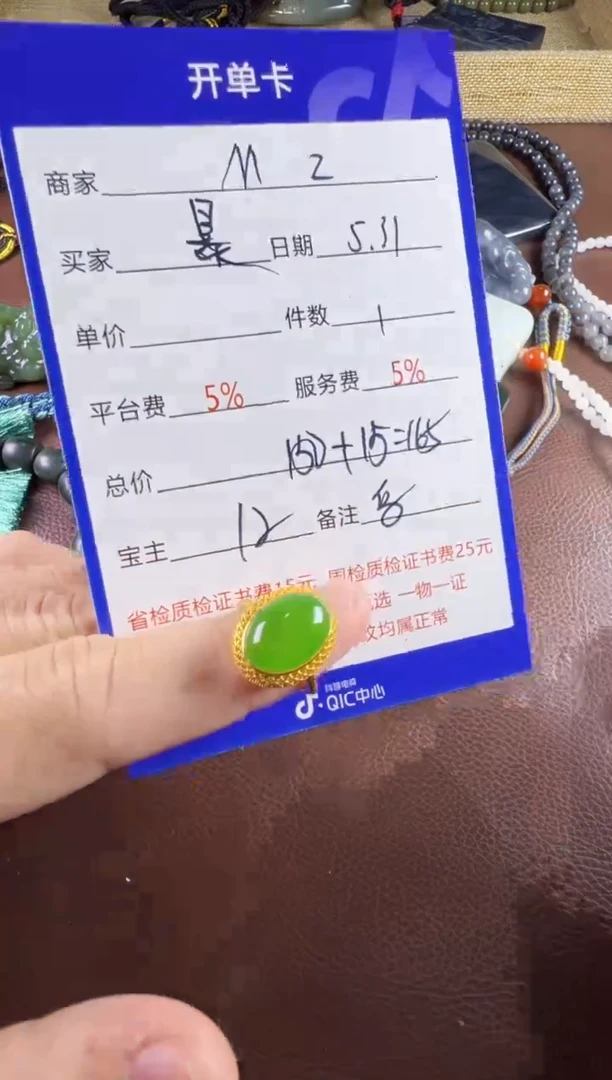 开单卡
商家 M 2
买家 暴 日期 5.31
单价 件数 1
平台费 5% 服务费 5%
总价 150+15=165
宝主 12 备注
省检质检证书费15元 国检质检证书费25元
选 一物一证
均属正常
抖音电商
QIC中心